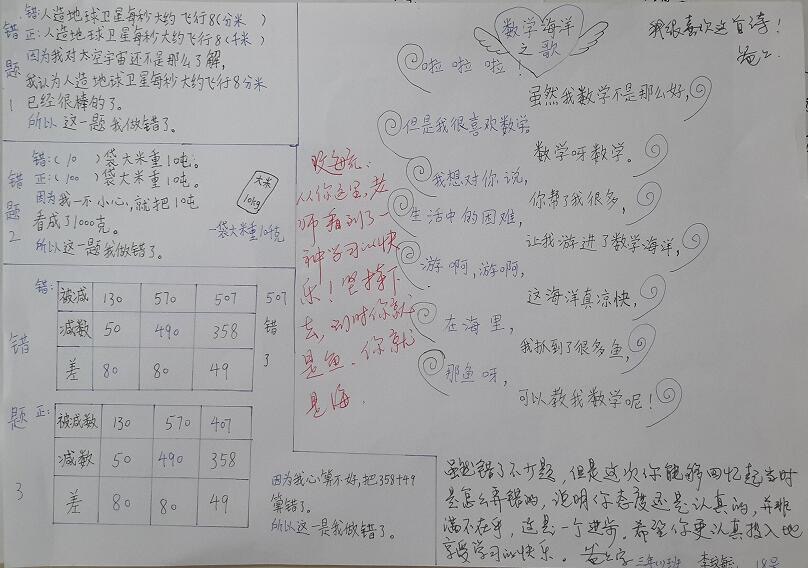 错题1
错:人造地球卫星每秒大约飞行8(分米)
正:人造地球卫星每秒大约飞行8(千米)
因为我对太空宇宙还不是那么了解,
我认为人造地球卫星每秒大约飞行8分米
已经很棒的了。
所以这一题我做错了。
错题2
错:(10)袋大米重10吨。
正:(100)袋大米重10吨。
因为我一不小心,就把10吨
看成了1000克。
所以这一题我做错了。
大米
10kg
一袋大米重10千克
错题3
错:
被减 130 570 507
减数 50 490 358
差 80 80 49
507
错
3
正:
被减数 130 570 407
减数 50 490 358
差 80 80 49
因为我心算不好,把358+49
算错了。
所以这一是我做错了。
数学海洋
之歌
我很喜欢这首诗!
啦啦啦!
虽然我数学不是那么好,
但是我很喜欢数学。
数学呀数学。
我想对你说,
你帮了我很多,
生活中的困难,
让我游进了数学海洋,
游啊,游啊,
这海洋真凉快,
在海里,
我扒到了很多鱼,
那鱼呀,
可以教我数学呢!
从你这里,老
师看到了一
种学习的快
乐!坚持下
去,到时你就
是鱼,你就
是海.
虽然错了不少题,但是这次你能够回忆起当时
是怎么弄错的,说明你态度还是认真的,并非
满不在乎,这是一个进步。希望你更认真投入地
享受学习的快乐。
三年(1)班 18号